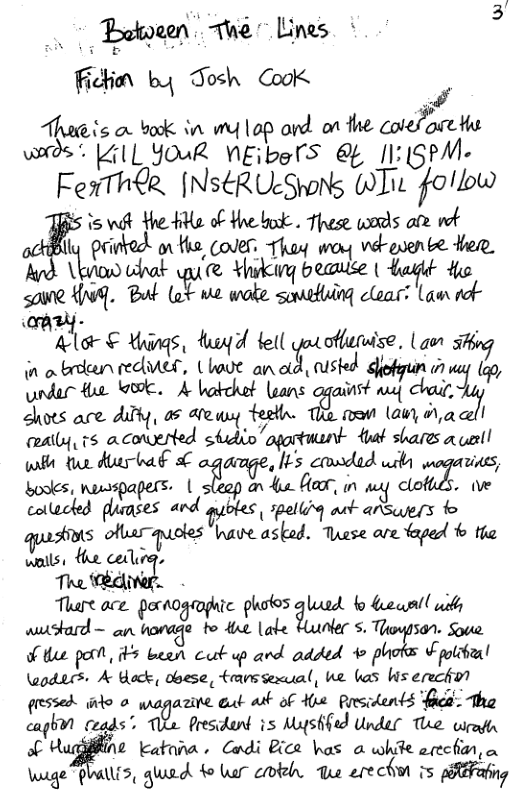 3
Between The Lines
Fiction by Josh Cook
There is a book in my lap and on the cover are the
words: KiLL YOUR nEiboRS @t 11:15PM.
FERTHER INStRUcShONS WIll follow
This is not the title of the book. These words are not
actually printed on the cover. They may not even be there.
And I know what you're thinking because I thought the
same thing. But let me make something clear: I am not
crazy.
A lot of things, they'd tell you otherwise. I am sitting
in a broken recliner. I have an old, rusted shotgun in my lap,
under the book. A hatchet leans against my chair. My
shoes are dirty, as are my teeth. The room I am, in, a cell
really, is a converted studio apartment that shares a wall
with the other half of a garage. It's crowded with magazines,
books, newspapers. I sleep on the floor, in my clothes. Ive
collected phrases and quotes, spelling out answers to
questions other quotes have asked. These are taped to the
walls, the ceiling.
The recliner.
There are pornographic photos glued to the wall with
mustard - an homage to the late Hunter S. Thompson. Some
of the porn, it's been cut up and added to photos of political
leaders. A black, obese, transsexual, he has his erection
pressed into a magazine cut out of the President's face. The
caption reads: The President is Mystified Under The wrath
of Hurricane Katrina. Condi Rice has a white erection, a
huge phallis, glued to her crotch. The erection is penetrating